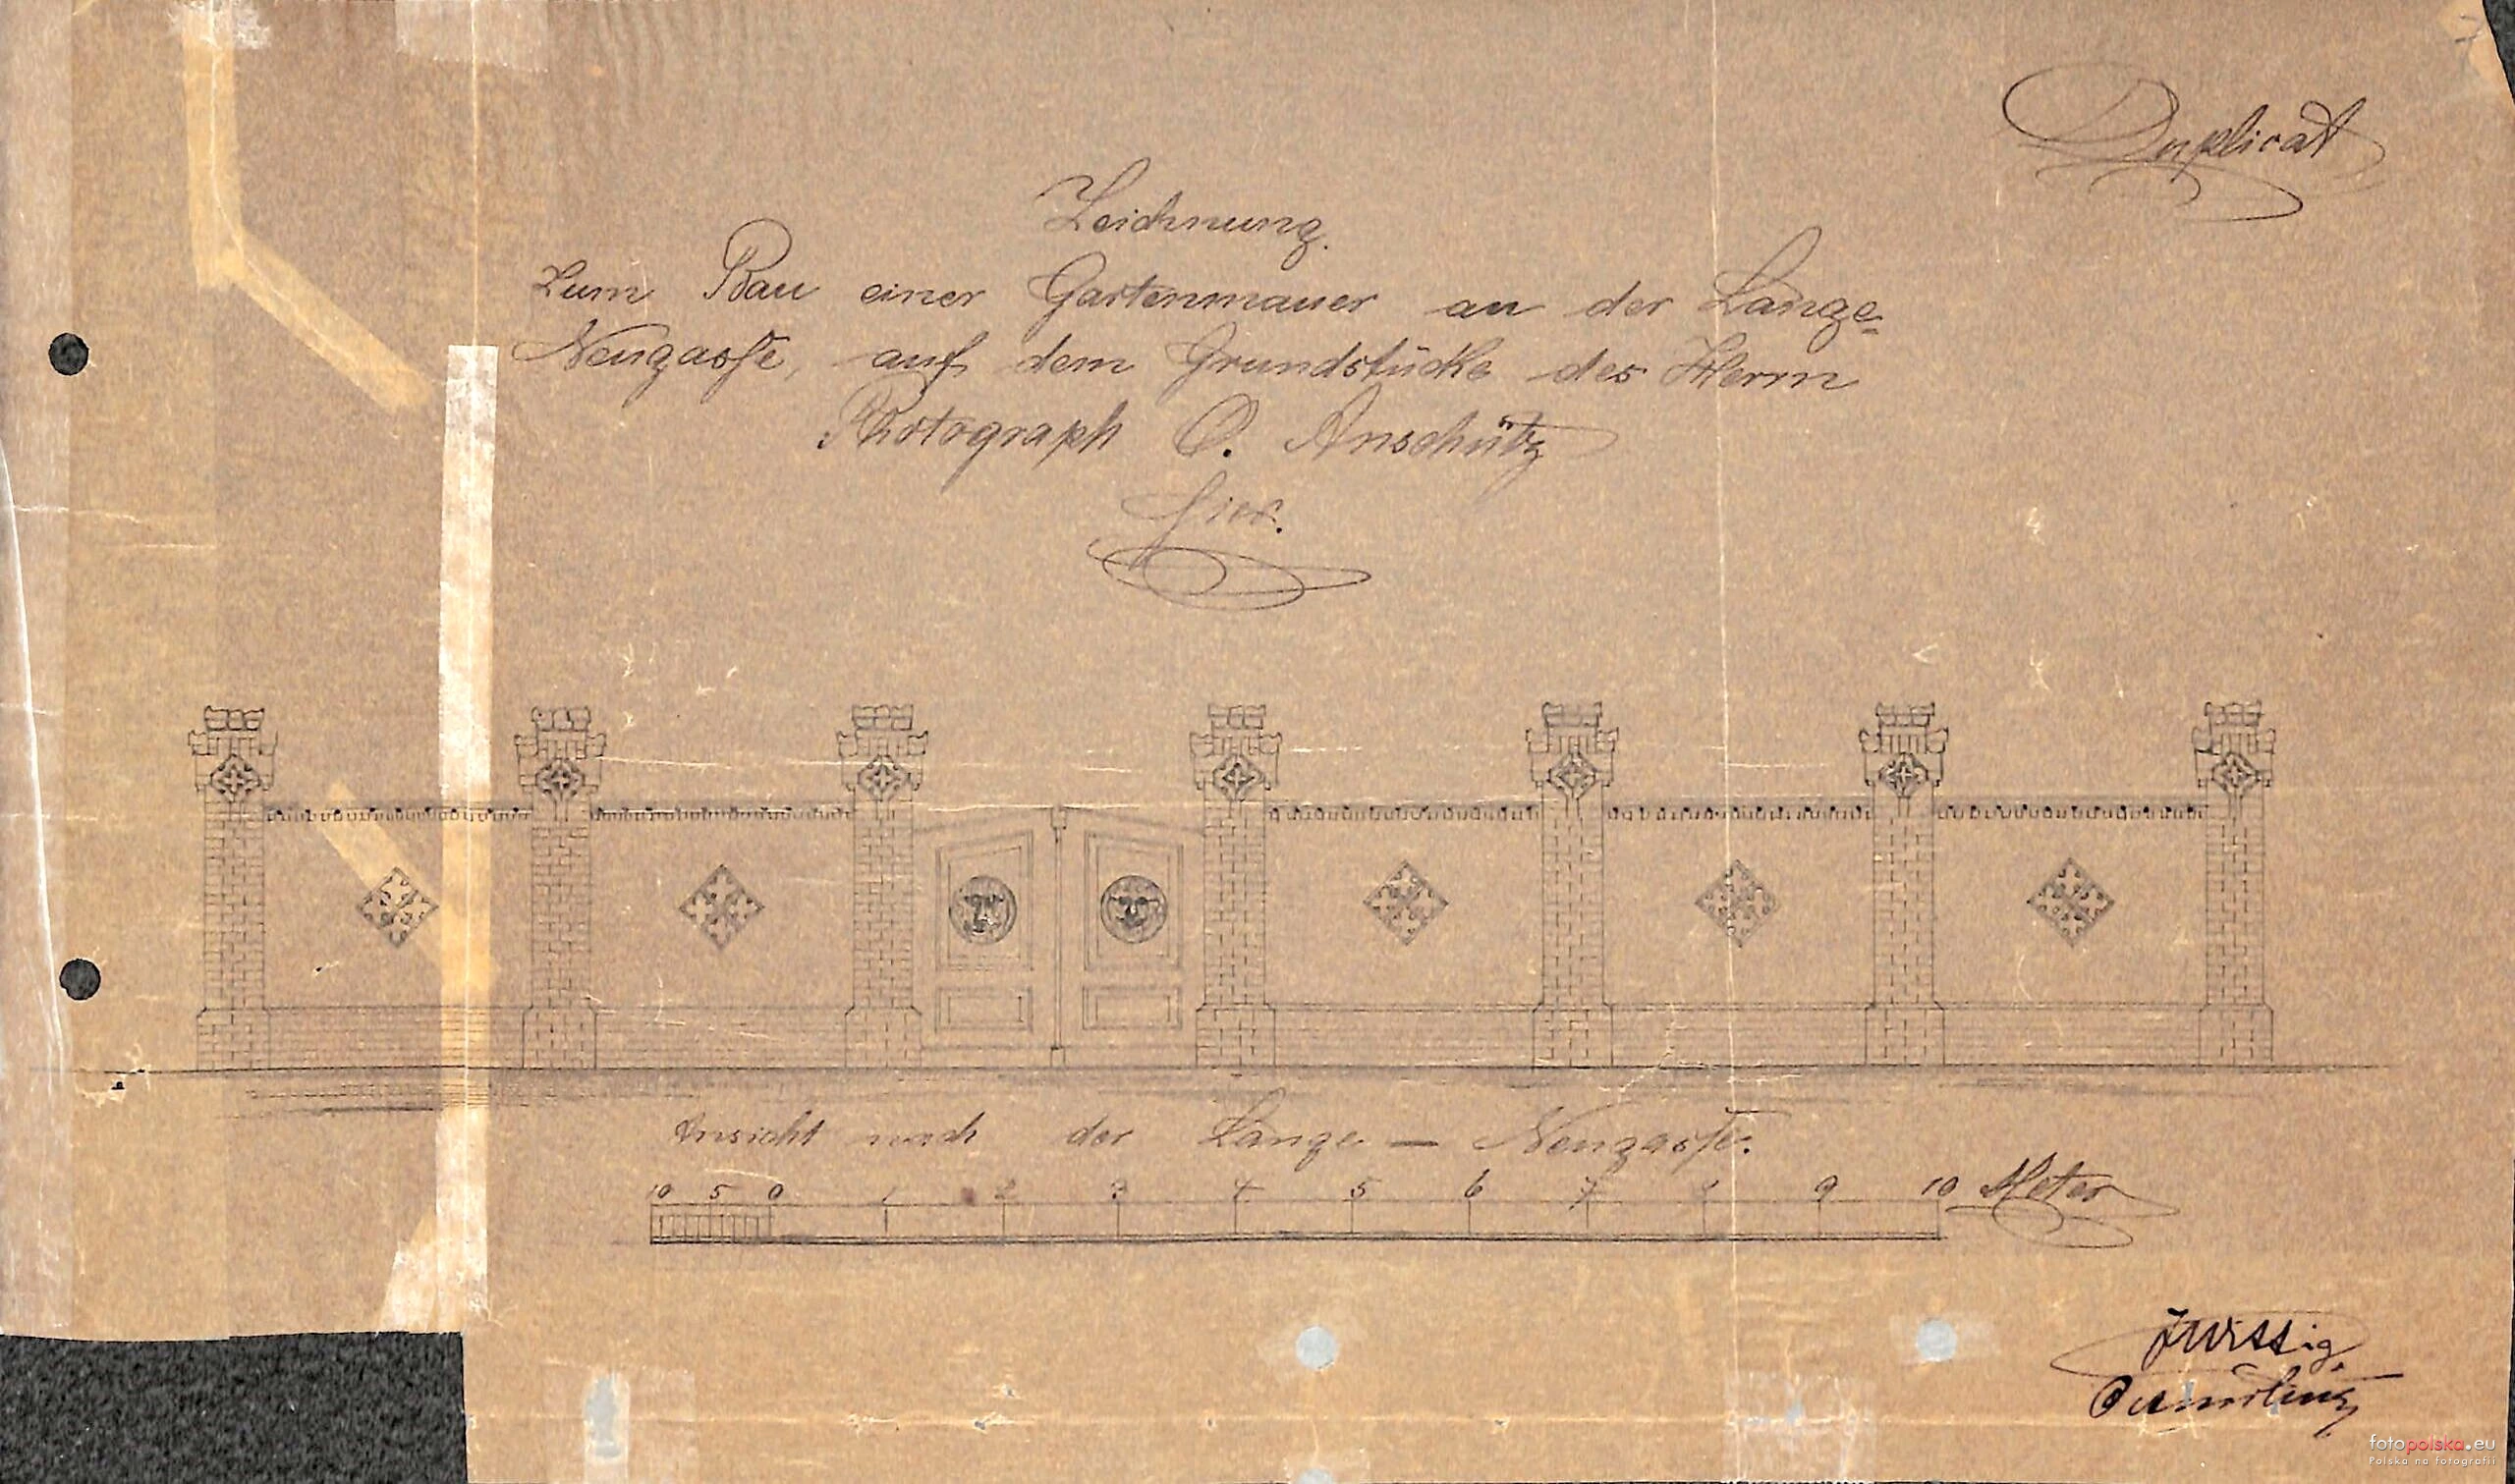 7
Duplicat
Zeichnung.
Zum Bau einer Gartenmauer an der Lange-
Neugasse, auf dem Grundstücke des Herrn
Photograph O. Anschütz
hier.
Ansicht nach der Lange — Neugasse.
10 5 0 1 2 3 4 5 6 7 8 9 10 Meter
fotopolska.eu
Polska na fotografii